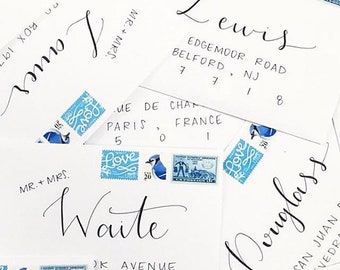 Lewis
EDGEMOOR ROAD
BELFORD . NJ
7 7 1 8
MR + MRS.
James
BOX 197
UE DE CHAR
PARIS , FRANCE
5 0 1
Love
Love
MR. + MRS.
Waite
OK AVENUE
Love
Douglass
SAN JUAN
VEDRA